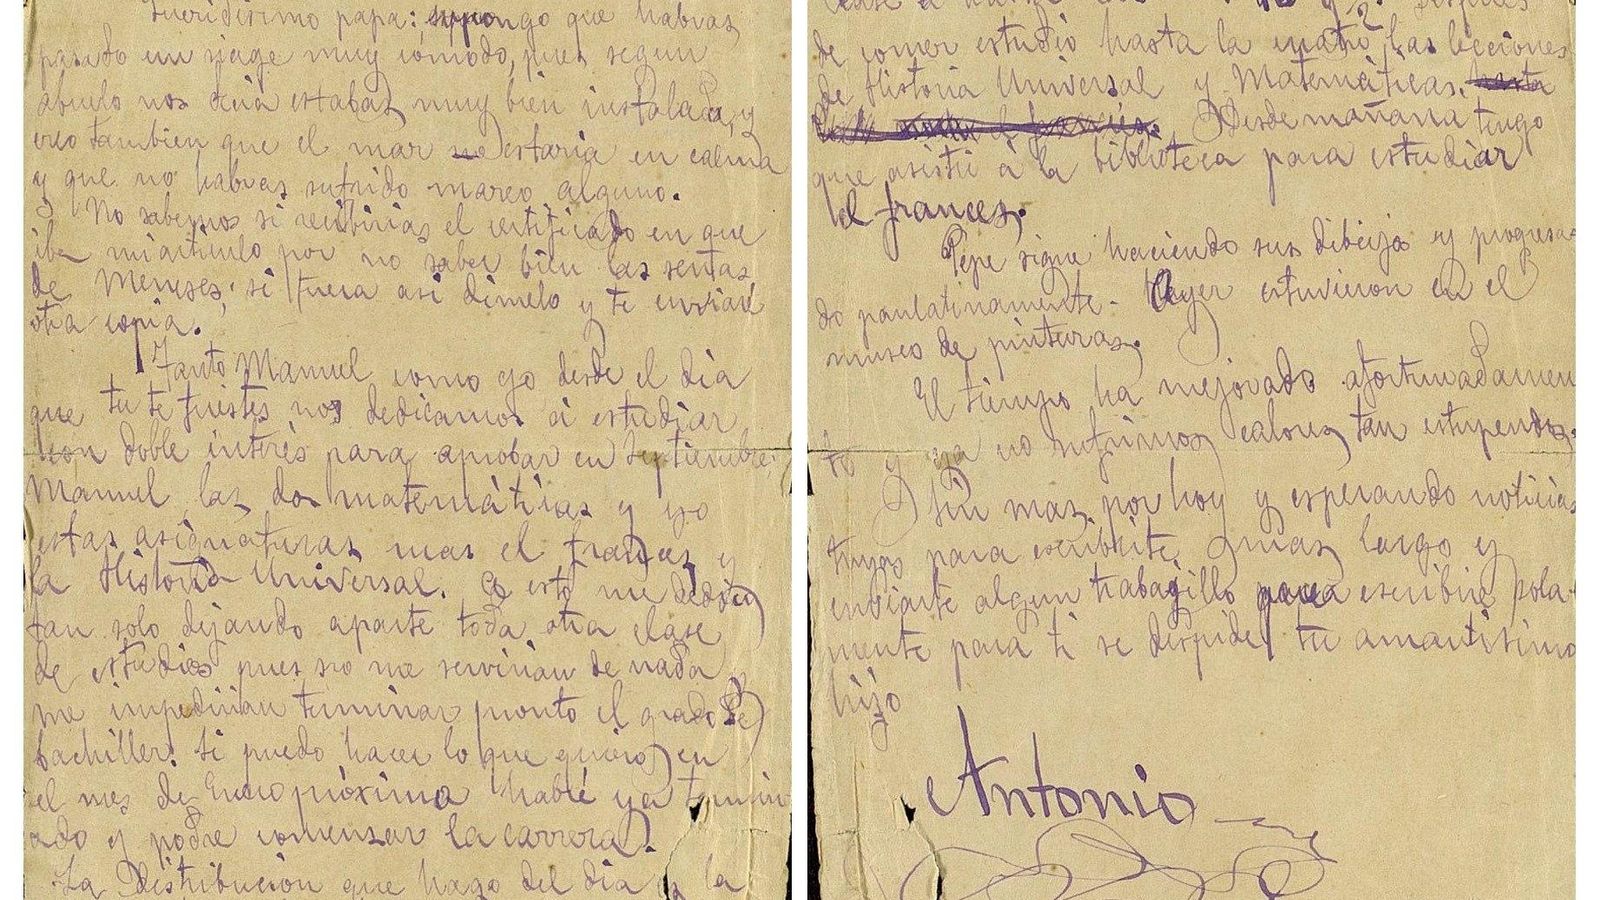 Queridisimo papa: supongo que habras
pasado un viage muy comodo, pues segun
abuelo nos decia estabas muy bien instalado, y
creo tambien que el mar estaria en calma
y que no habras sufrido mareo alguno.
No sabemos si recibirias el certificado en que
iba mi articulo por no saber bien las señas
de Meneses; si fuera asi dimelo y te enviaré
otra copia.
Tanto Manuel como yo desde el dia
que tu te fuestes nos dedicamos á estudiar
con doble intrés para aprobar en Septiembre;
Manuel las dos matemáticas y yo
estas asignaturas mas el frances y
la Historia Universal. á esto me dedico
tan solo dejando aparte toda otra clase
de estudios pues no me servirian de nada
me impedirian terminar pronto el grado de
bachiller. Si puedo hacer lo que quiero en
el mes de Enero próximo habré ya termin
ado y podre comenzar la carrera.
La Distribucion que hago del dia la
Despues
de comer estudio hasta la cuatro las lecciones
de Historia Universal y Matemáticas.
Desde mañana tengo
que asistir á la biblioteca para estudiar
el frances.
Pepe sigue haciendo sus dibujos y progresan-
do paulatinamente. Ayer estuvieron en el
museo de pinturas.
El tiempo ha mejorado afortunadamen
te y ya no sufrimos calores tan estupendos.
Sin mas por hoy y esperando noticias
tuyas para escribirte mas largo y
enviarte algun trabagillo para escribir sola-
mente para ti se despide tu amantisimo
hijo
Antonio